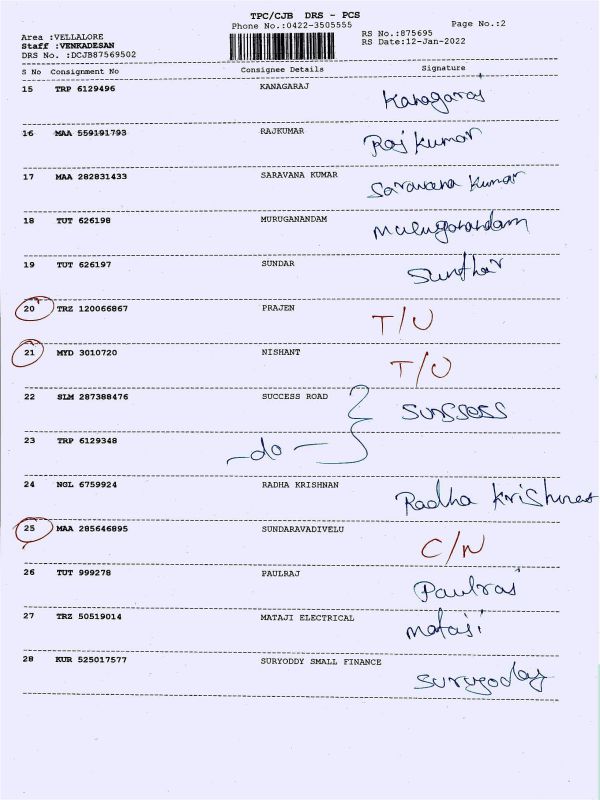 TPC/CJB DRS - PCS
Phone No.:0422-3505555
Page No.:2
Area :VELLALORE
RS No.:875695
Staff :VENKADESAN
RS Date:12-Jan-2022
DRS No. :DCJB87569502
S No Consignment No Consignee Details Signature
15 TRP 6129496 KANAGARAJ Kanagaraj
16 MAA 559191793 RAJKUMAR Rajkumar
17 MAA 282831433 SARAVANA KUMAR Saravana Kumar
18 TUT 626198 MURUGANANDAM Muruganandam
19 TUT 626197 SUNDAR Sunthar
20 TRZ 120066867 PRAJEN T/U
21 MYD 3010720 NISHANT T/U
22 SLM 287388476 SUCCESS ROAD
23 TRP 6129348 -do-
24 NGL 6759924 RADHA KRISHNAN Radha Krishnan
25 MAA 285646895 SUNDARAVADIVELU C/N
26 TUT 999278 PAULRAJ Paulraj
27 TRZ 50519014 MATAJI ELECTRICAL Mataji
28 KUR 525017577 SURYODDY SMALL FINANCE Suryoday